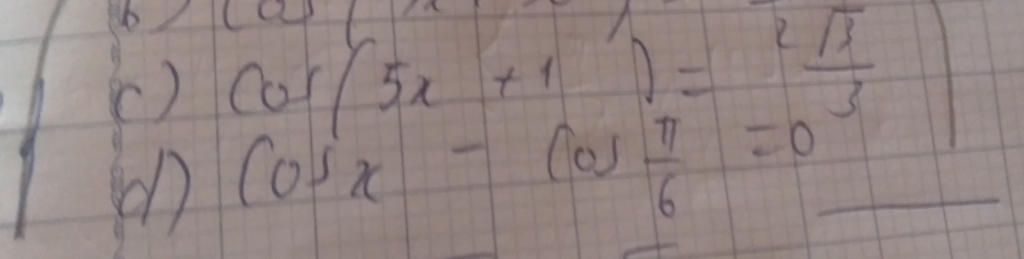 b) Cos(
c) Cos(5x + 1) = √3/3
d) Cos x - Cos π/6 = 0